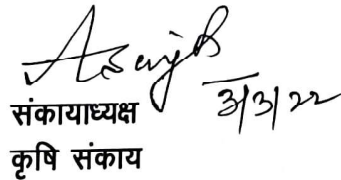 3/3/22
संकायाध्यक्ष
कृषि संकाय